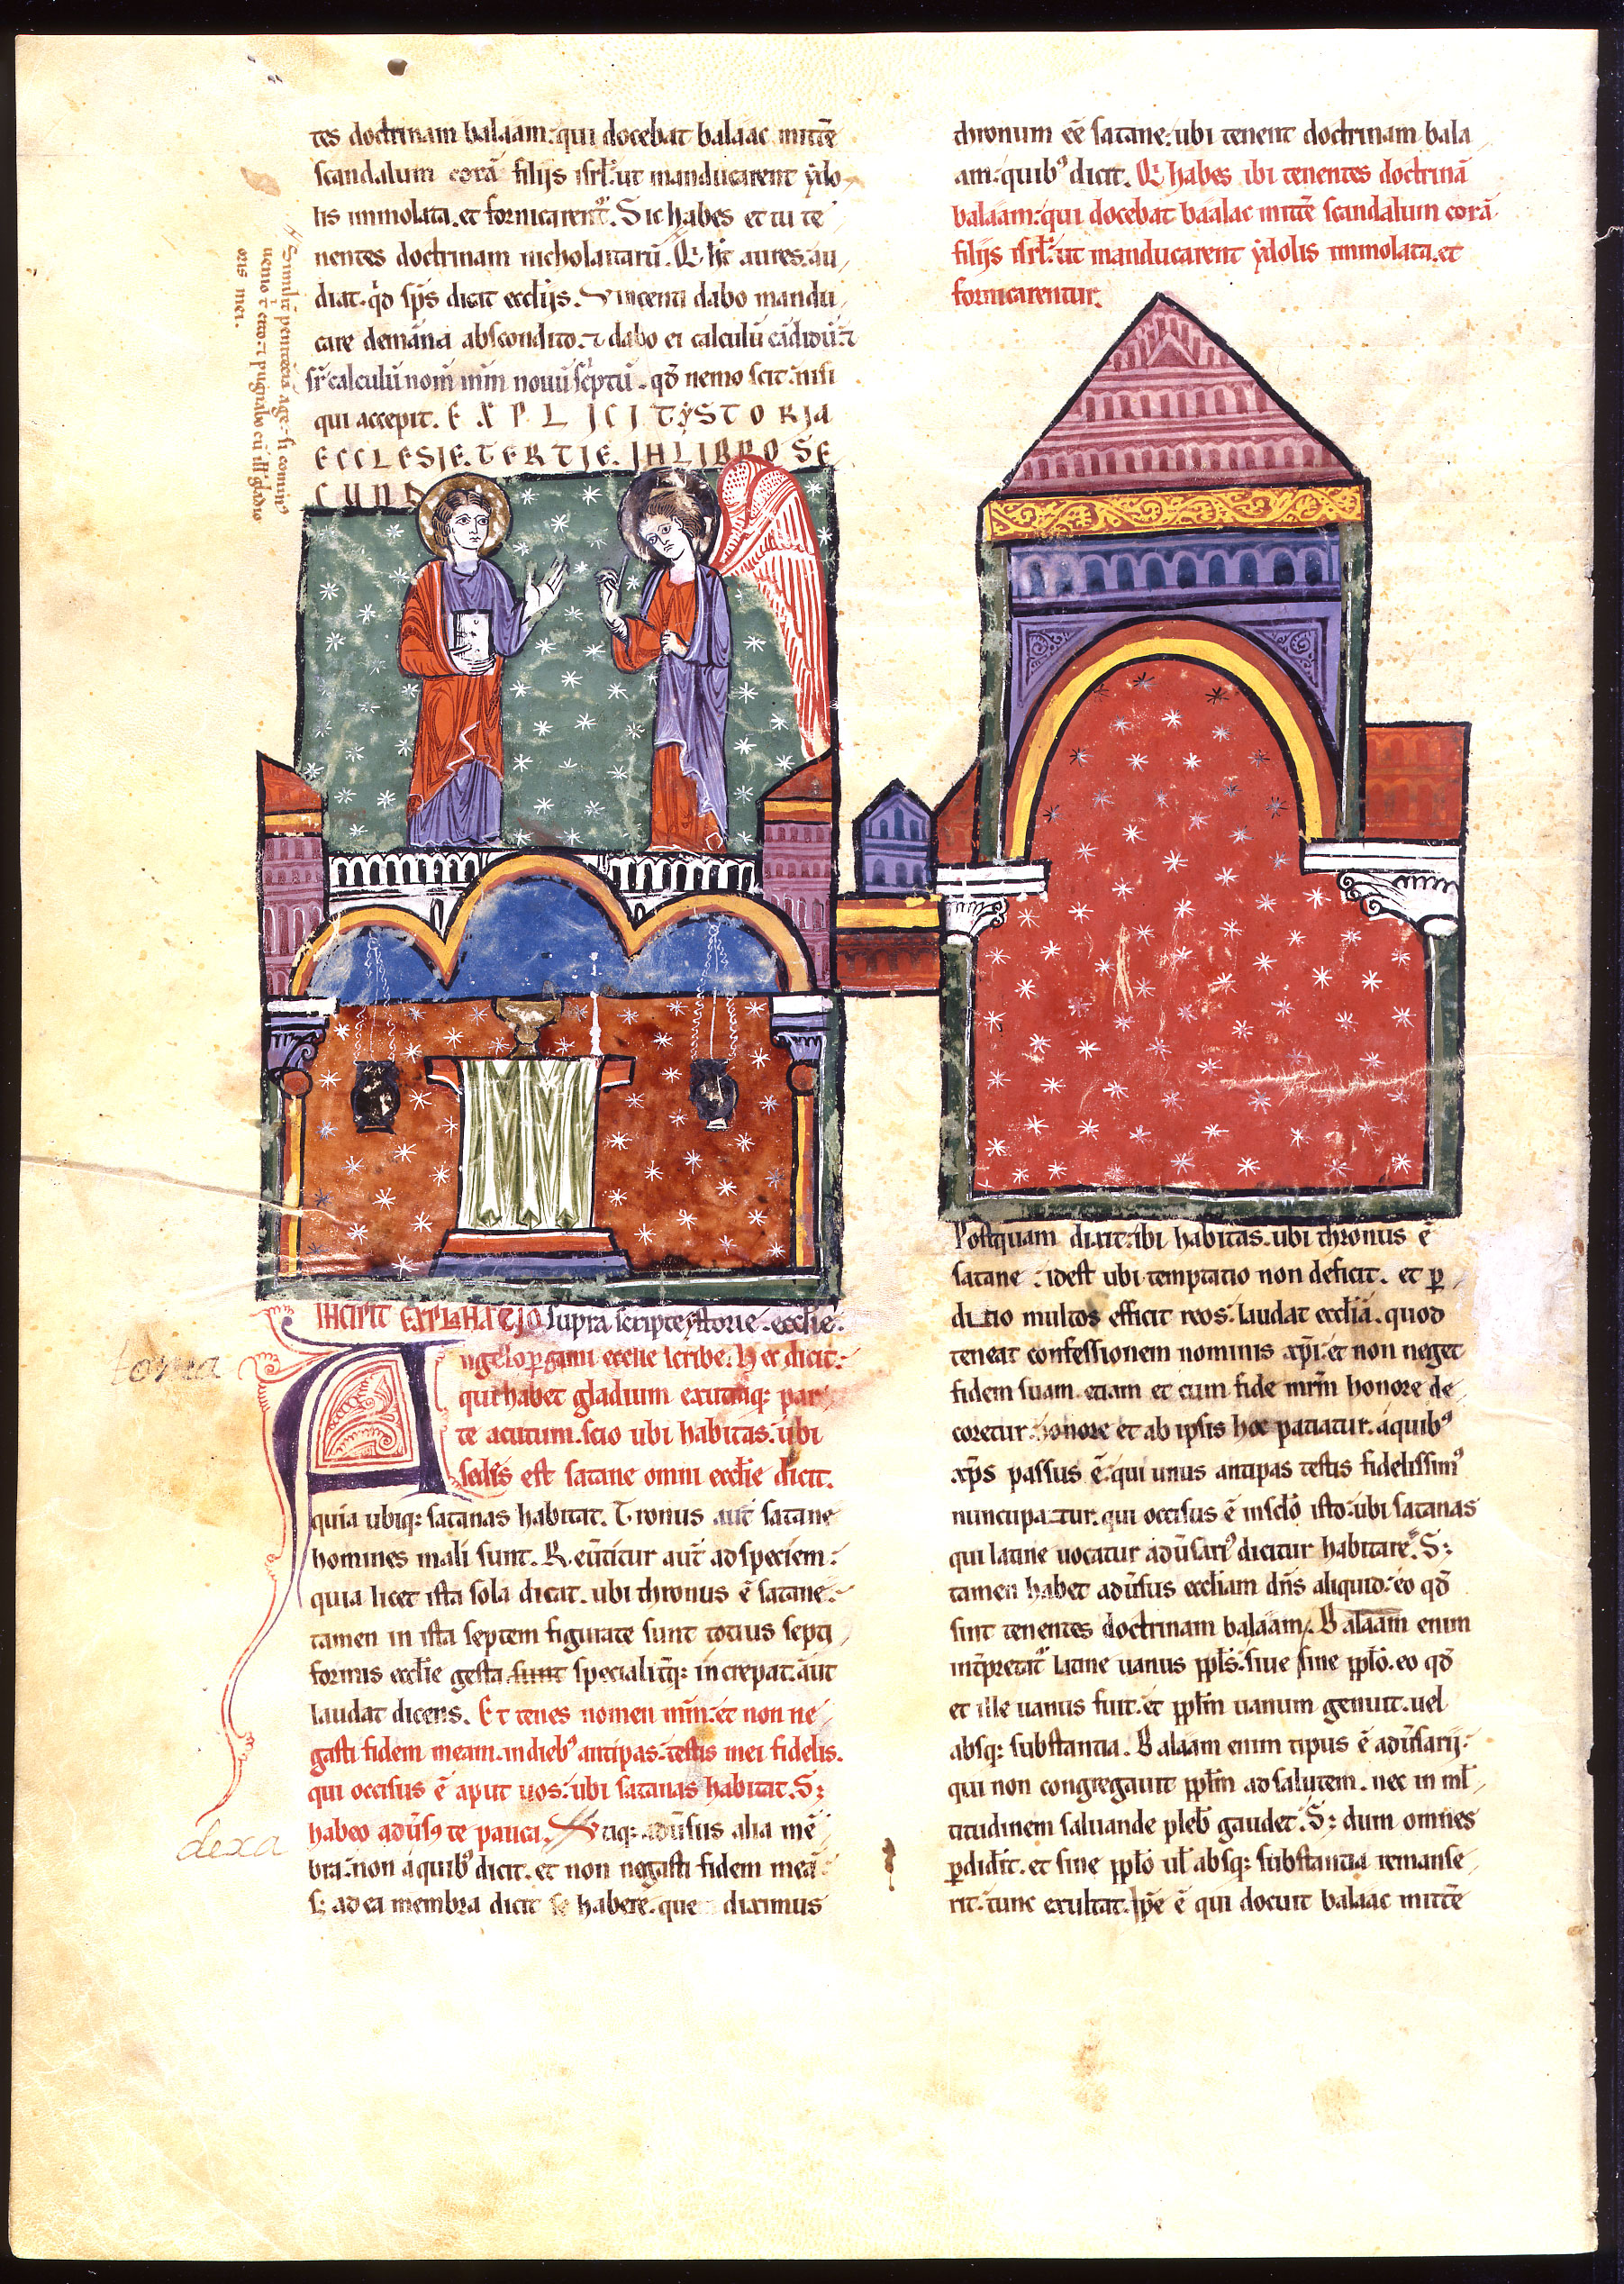 tes doctrinam balaam: qui docebat balaac mittē
scandalum corā filijs isrl̄: ut manducarent ẏdo
lis immolata. et fornicarent᷑. Sic habes et tu te
nentes doctrinam nicholaitarū. Q hꝫt aures: au
diat. qd̄ sp̄s dicit eccl̄ijs. Vincenti dabo mandu
care demāna abscondito. ⁊ dabo ei calculū cādidū: ⁊
sr̄ calculū nom̄ m̄m nouū sc̄ptū. qd̄ nemo scit: nisi
qui accepit. EXPLICIT YSTORIA
ECCLESIE. TERTIE. IN LIBRO SE
CUND
INCIPIT EXPLANATIO supra scripte ystorie. eccl̄ie.
Angelo ꝑgami eccl̄ie scribe. Hec dicit:
qui habet gladium ex utraqꝫ par
te acutum. scio ubi habitas. ubi
sedis est satane omni eccl̄ie dicit.
quia ubiqꝫ satanas habitat. Tronus aut̄ satane
homines mali sunt. Reūtitur aut̄ ad speciem:
quia licet ista sola dicat. ubi thronus ē satane:
tamen in ista septem figurate sunt totius septi
formis eccl̄ie gesta sunt specialit̄qꝫ: increpat. aut
laudat dicens. Et tenes nomen m̄m: et non ne
gasti fidem meam. in diebꝰ antipas. testis mei fidelis.
qui occisus ē aput uos: ubi satanas habitat. Sꝫ
habeo adūsꝰ te pauca. Utiqꝫ adūsus alia mē
bra: non aquibꝰ dicit. et non negasti fidem meā:
sꝫ ad ea membra dicit se habere. que diximus
thronum ēē satane: ubi tenent doctrinam bala
am: quibꝰ dicit. Q habes ibi tenentes doctrinā
balaam: qui docebat baalac mittē scandalum corā
filijs isrl̄: ut manducarent ẏdolis immolata. et
fornicarentur.
Postquam dixit: ibi habitas. ubi thronus ē
satane: idest ubi temptatio non deficit. et ꝑ
ditio multos efficit reos: laudat eccl̄iā. quod
teneat confessionem nominis xp̄i: et non neget
fidem suam. etiam et cum fide mr̄m honore de
coretur. honore et ab ipsis hoc patiatur. aquibꝰ
xp̄s passus ē: qui unus antipas testis fidelissimꝰ
nuncupatur. qui occisus ē inscl̄o isto: ubi satanas
qui latine uocatur adūsariꝰ dicitur habitare. Sꝫ
tamen habet adūsus eccl̄iam dn̄s aliquid: eo qd̄
sint tenentes doctrinam balaam. Balaam enim
int̄pretat᷑ latine uanus ppl̄s: siue sine ppl̄o. eo qd̄
et ille uanus fuit. et ppl̄m uanum genuit. uel
absqꝫ substantia. Balaam enim tipus ē adūsarij:
qui non congregauit ppl̄m ad salutem. nec in ml̄
titudinem saluande pleb̄ gaudet. Sꝫ dum omnes
ꝑdidit̄. et sine ppl̄o ul̄ absqꝫ substantia remanse
rit: tunc exultat. Ip̄e ē qui docuit balaac mittē
Similit̄ penitēciā age: si cominꝰ
uenio t̄ cito: ⁊ pugnabo cū ill̄ gladio
oris mei.
torna
dexa